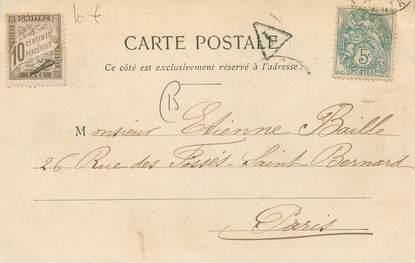 10 t
CHIFFRE
10 CENTIMES
À PERCEVOIR
TAXE
CARTE POSTALE
T
5c
Ce côté est exclusivement réservé à l'adresse.
B
Monsieur Etienne Baille
26 Rue des Fossés-Saint-Bernard
Paris